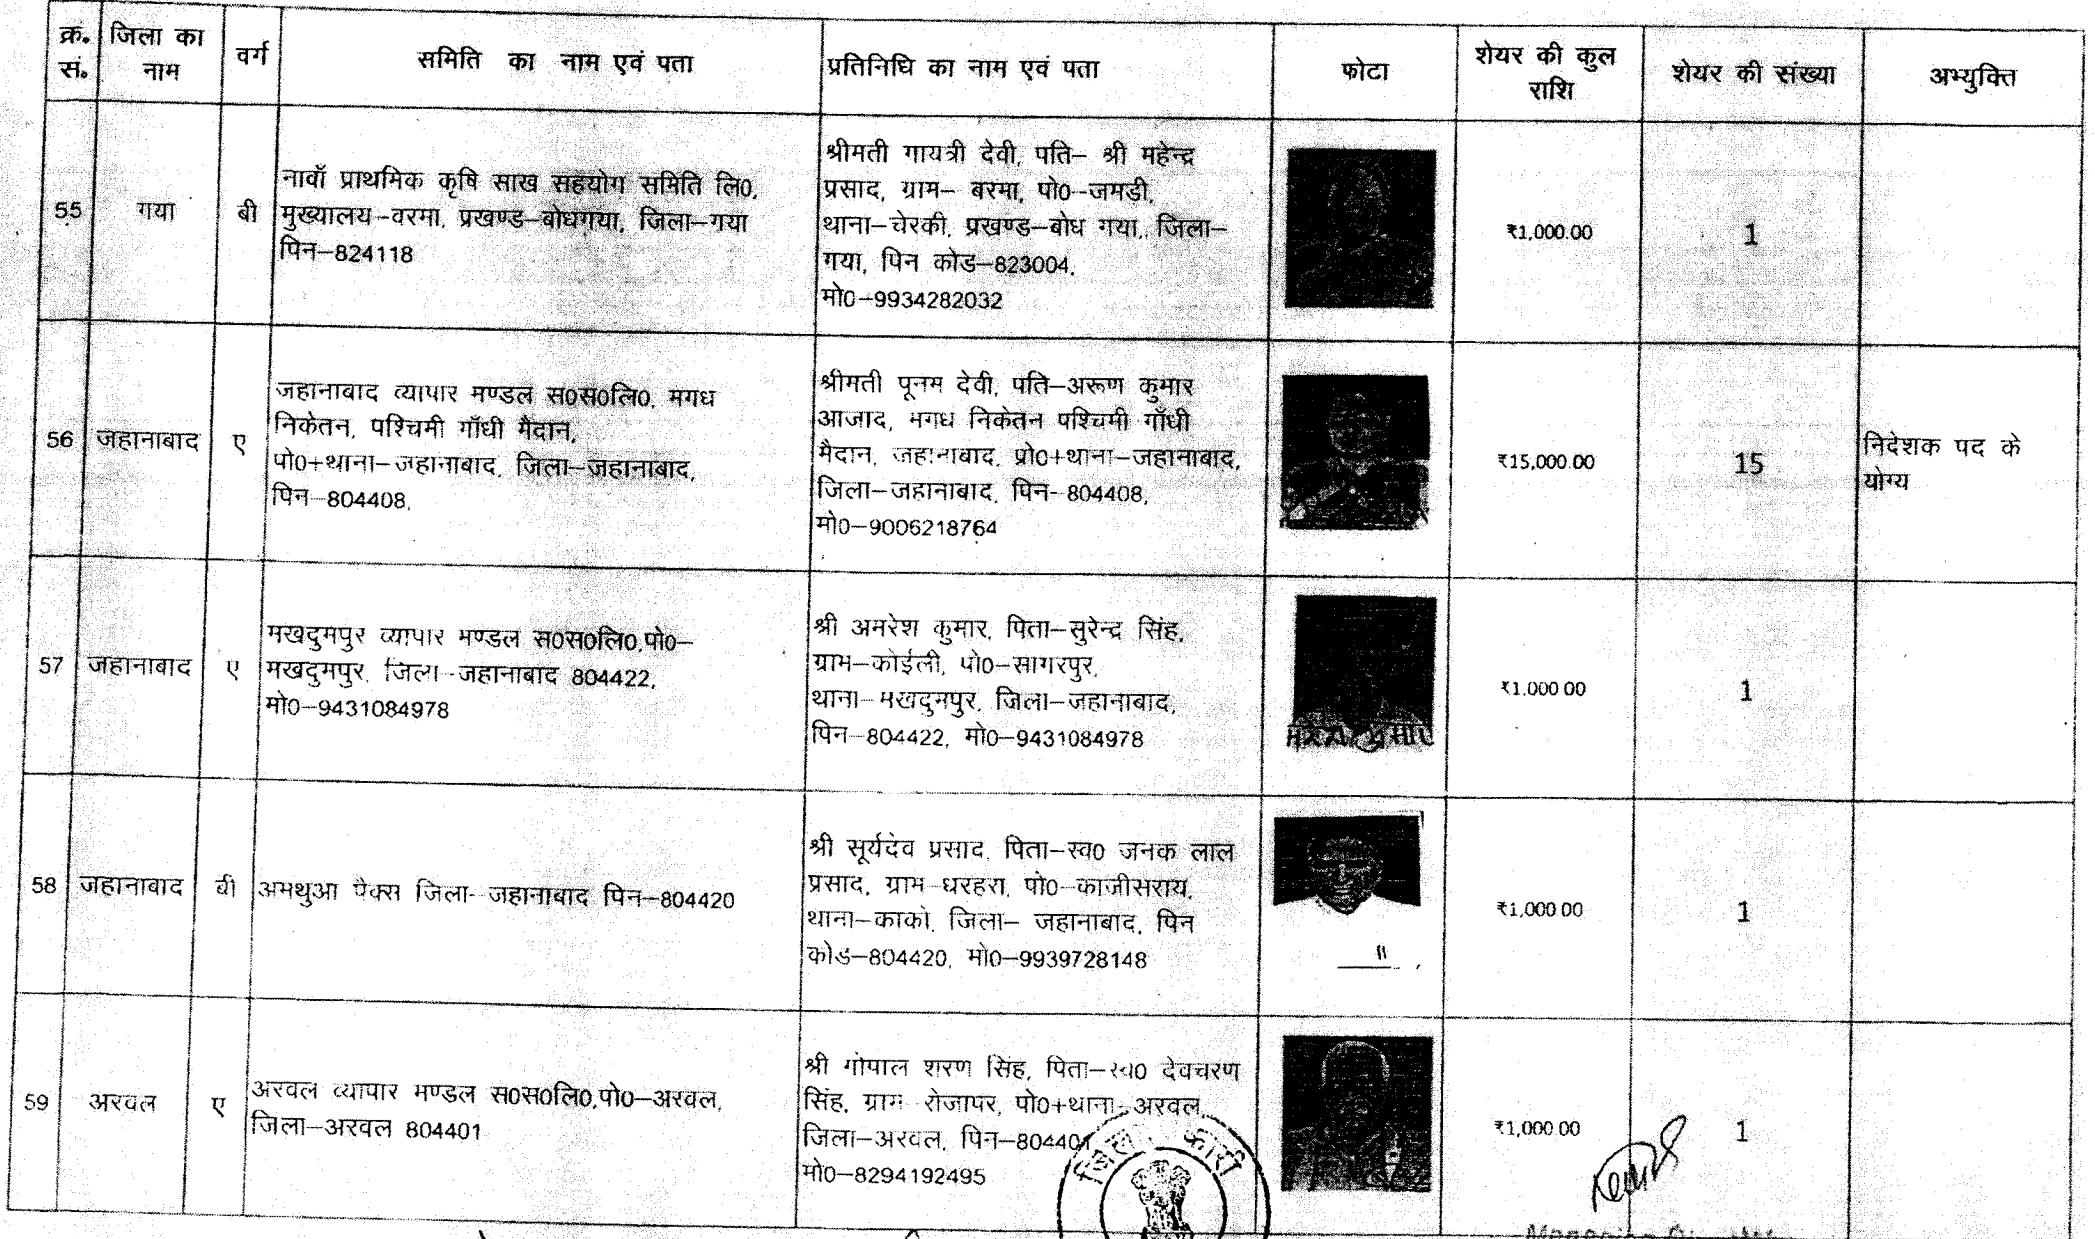 क्र. सं. जिला का नाम वर्ग समिति का नाम एवं पता प्रतिनिधि का नाम एवं पता फोटा शेयर की कुल राशि शेयर की संख्या अभ्युक्ति
55 गया बी
नावाँ प्राथमिक कृषि साख सहयोग समिति लि0,
मुख्यालय-वरमा, प्रखण्ड-बोधगया, जिला-गया
पिन-824118
श्रीमती गायत्री देवी, पति- श्री महेन्द्र
प्रसाद, ग्राम- बरमा, पो0-जमडी,
थाना-चेरकी, प्रखण्ड-बोध गया, जिला-
गया, पिन कोड-823004,
मो0-9934282032
₹1,000.00 1
56 जहानाबाद ए
जहानाबाद व्यापार मण्डल स0स0लि0, मगध
निकेतन, पश्चिमी गाँधी मैदान,
पो0+थाना-जहानाबाद, जिला-जहानाबाद,
पिन-804408,
श्रीमती पूनम देवी, पति-अरूण कुमार
आजाद, मगध निकेतन पश्चिमी गाँधी
मैदान, जहानाबाद, प्रो0+थाना-जहानाबाद,
जिला-जहानाबाद, पिन-804408,
मो0-9006218764
₹15,000.00 15
निदेशक पद के
योग्य
57 जहानाबाद ए
मखदुमपुर व्यापार मण्डल स0स0लि0,पो0-
मखदुमपुर, जिला-जहानाबाद 804422,
मो0-9431084978
श्री अमरेश कुमार, पिता-सुरेन्द्र सिंह,
ग्राम-कोईली, पो0-सागरपुर,
थाना-मखदुमपुर, जिला-जहानाबाद,
पिन-804422, मो0-9431084978
₹1,000 00 1
58 जहानाबाद बी
अमथुआ पैक्स जिला-जहानाबाद पिन-804420
श्री सूर्यदेव प्रसाद, पिता-स्व0 जनक लाल
प्रसाद, ग्राम-धरहरा, पो0-काजीसराय,
थाना-काको, जिला- जहानाबाद, पिन
कोड-804420, मो0-9939728148
₹1,000 00 1
59 अरवल ए
अरवल व्यापार मण्डल स0स0लि0,पो0-अरवल,
जिला-अरवल 804401
श्री गोपाल शरण सिंह, पिता-स्व0 देवचरण
सिंह, ग्राम रोजापर, पो0+थाना-अरवल,
जिला-अरवल, पिन-804401
मो0-8294192495
₹1,000 00 1